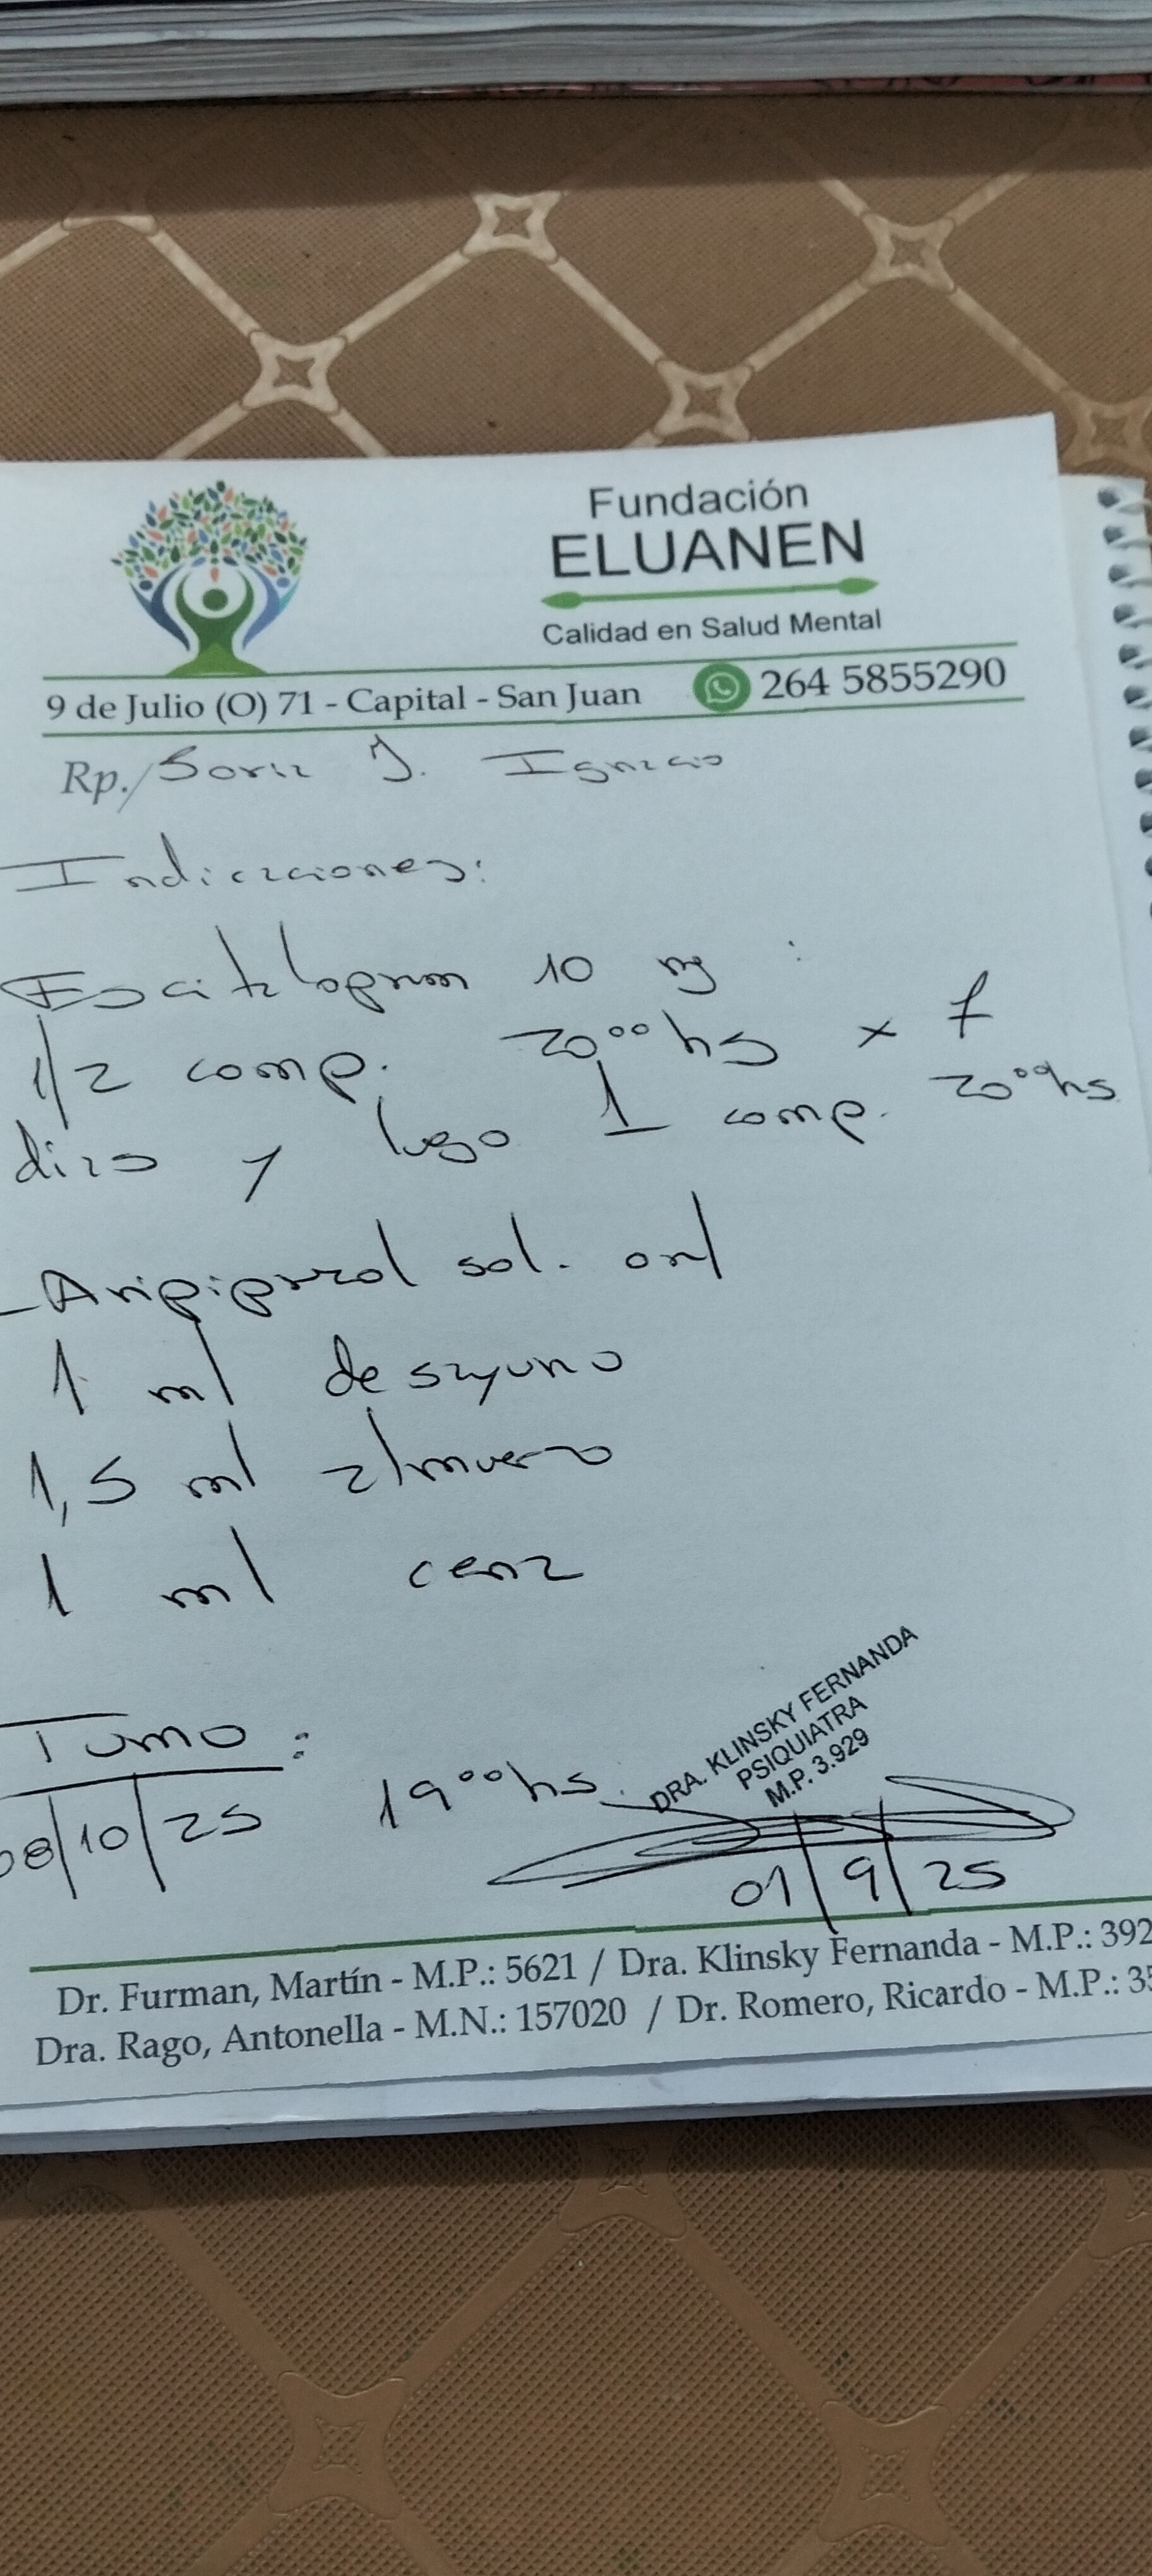 Fundación
ELUANEN
Calidad en Salud Mental
9 de Julio (O) 71 - Capital - San Juan 264 5855290
Rp./ Soria J. Ignacio
Indicaciones:
Escitalopram 10 mg :
1/2 comp. 20⁰⁰ hs x 7
dias y luego 1 comp. 20⁰⁰ hs
- Aripiprazol sol. oral
1 ml desayuno
1,5 ml almuerzo
1 ml cena
Turno :
08/10/25 19⁰⁰ hs.
DRA. KLINSKY FERNANDA
PSIQUIATRA
M.P. 3.929
01/9/25
Dr. Furman, Martín - M.P.: 5621 / Dra. Klinsky Fernanda - M.P.: 392
Dra. Rago, Antonella - M.N.: 157020 / Dr. Romero, Ricardo - M.P.: 35